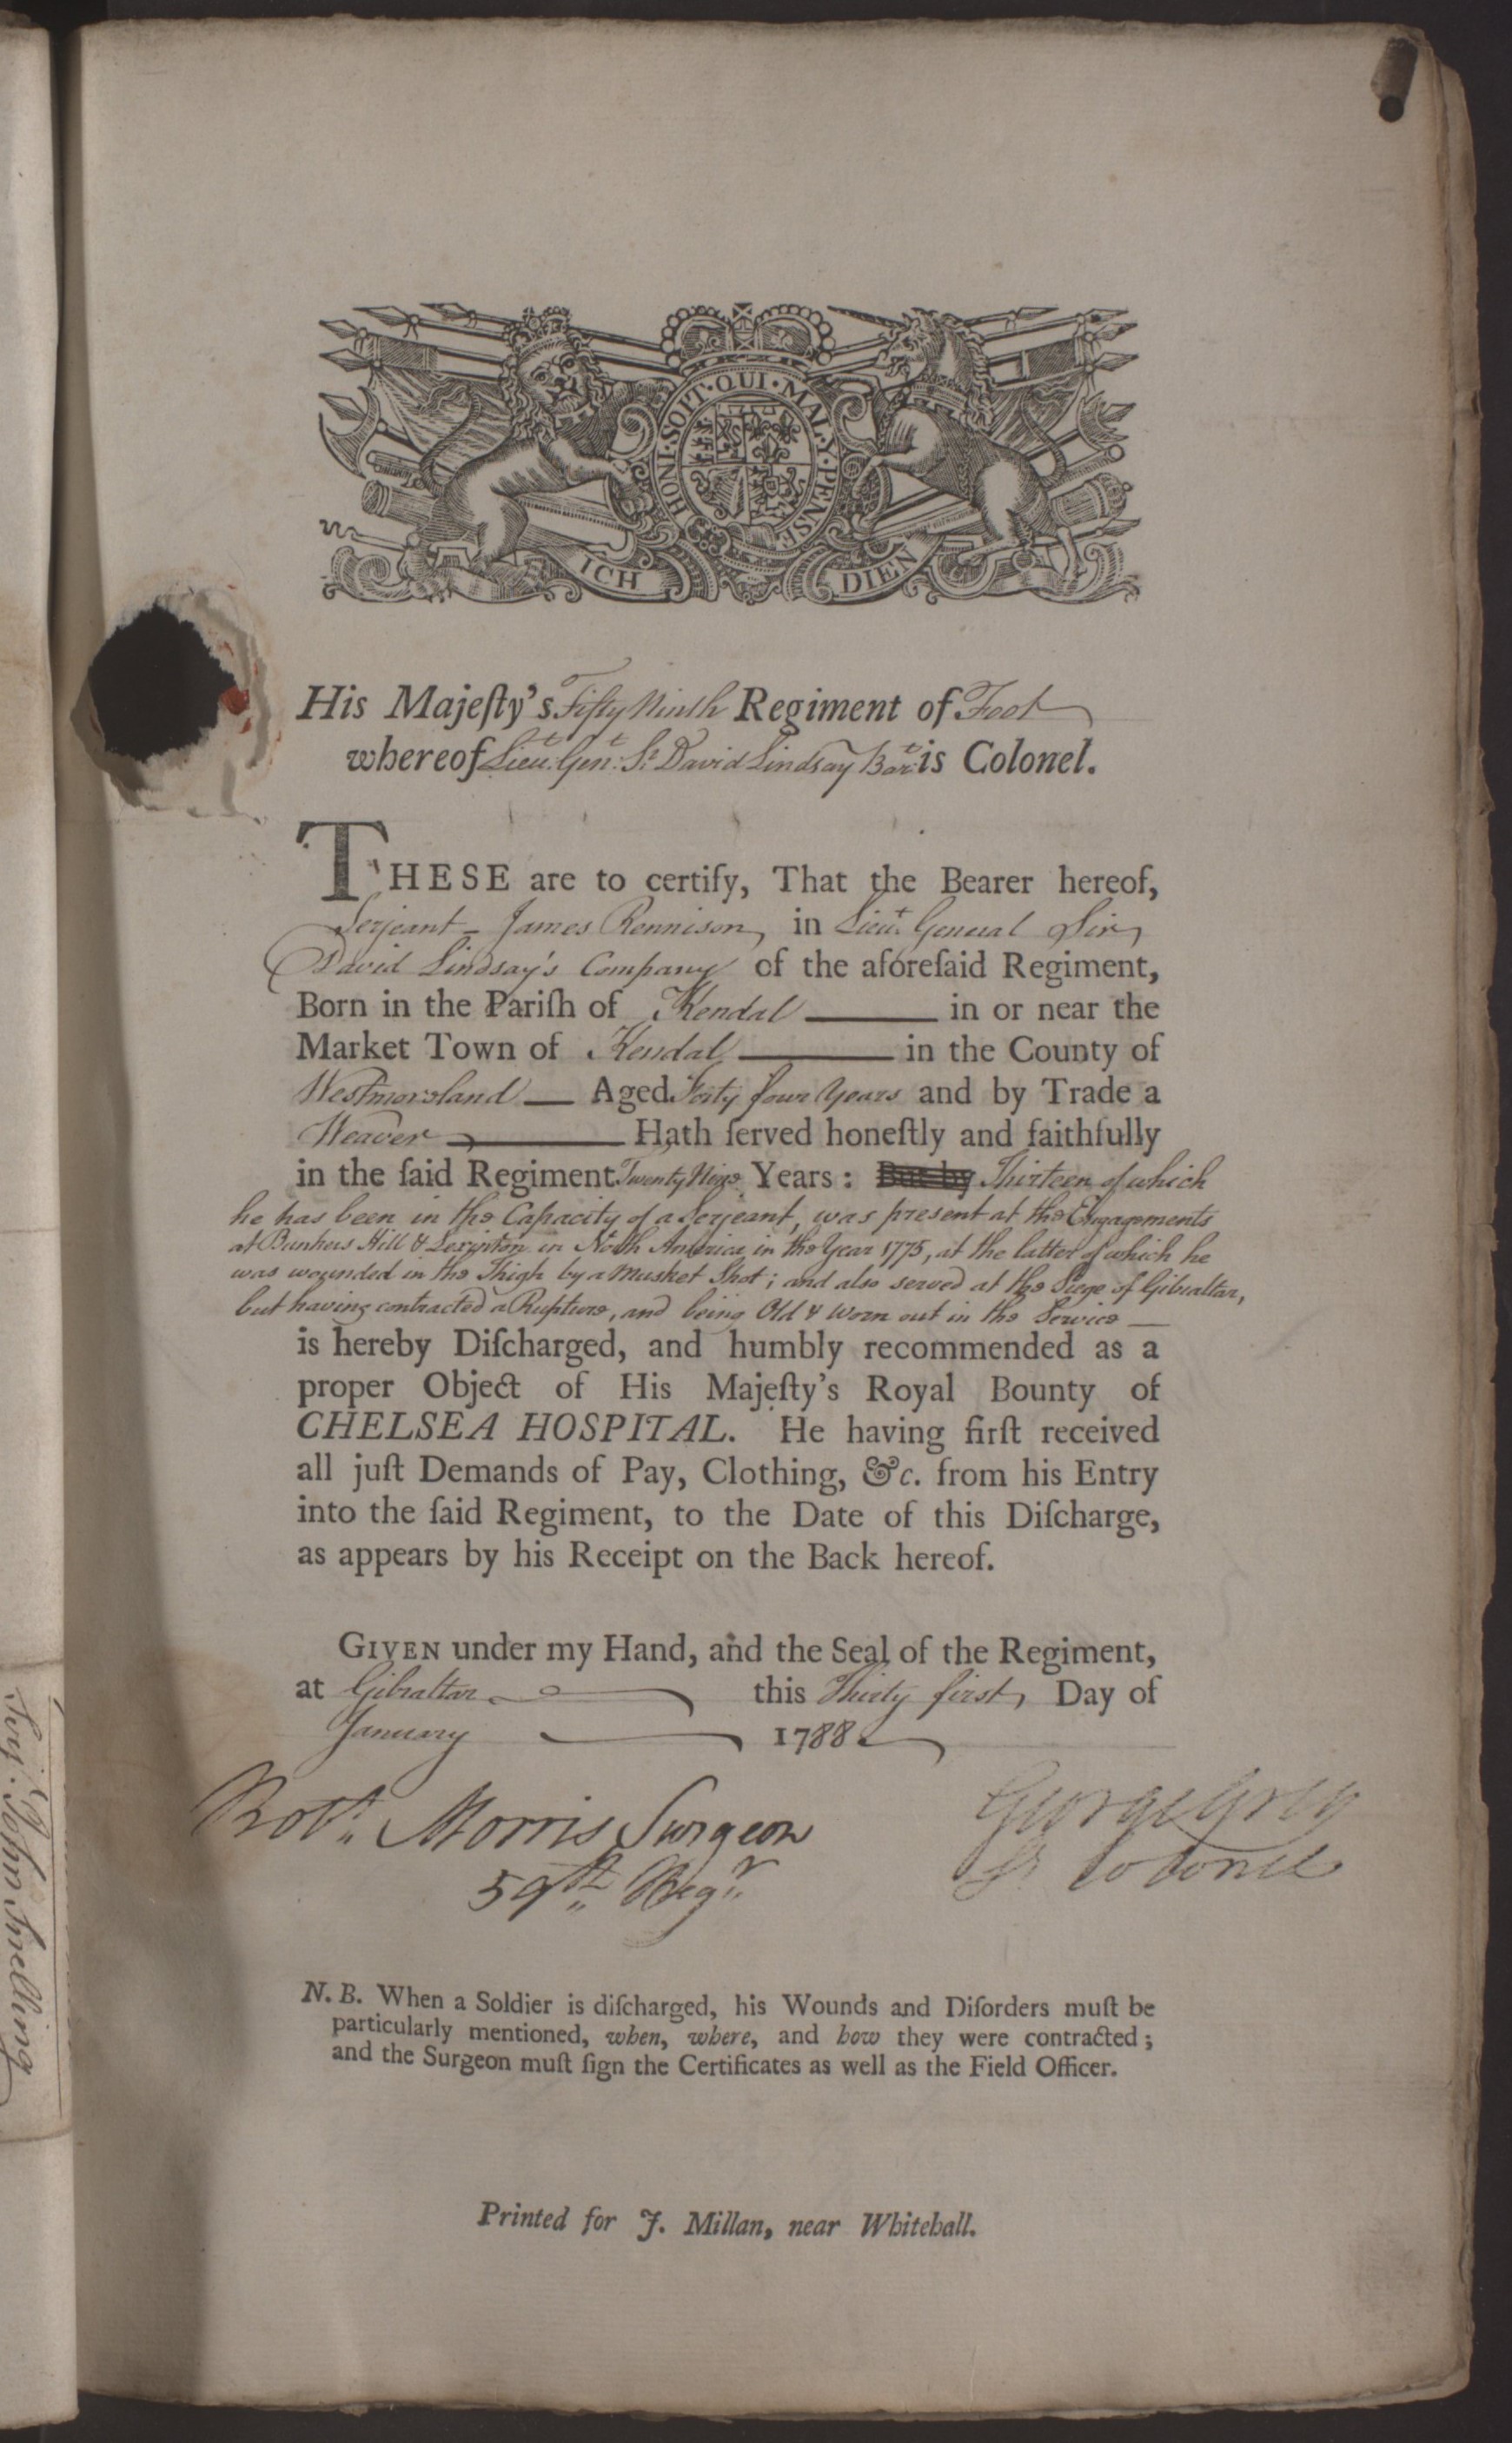 HONI·SOIT·QUI·MAL·Y·PENSE
ICH DIEN
His Majeſty's Fifty Ninth Regiment of Foot
whereof Lieut. Gent. Sr. David Lindsay Bart. is Colonel.
THESE are to certify, That the Bearer hereof,
Serjeant - James Rennison, in Lieut. General Sir
David Lindsay's Company of the aforeſaid Regiment,
Born in the Pariſh of Kendal in or near the
Market Town of Kendal in the County of
Westmorsland Aged Forty four Years and by Trade a
Weaver Hath ſerved honeſtly and faithfully
in the ſaid Regiment Twenty Nine Years : But by Thirteen of which
he has been in the Capacity of a Serjeant, was present at the Engagements
at Bunkers Hill & Lexinton in North America in the Year 1775, at the latter of which he
was wounded in the Thigh by a Musket Shot ; and also served at the Siege of Gibraltar,
but having contracted a Rupture, and being Old & Worn out in the Service
is hereby Diſcharged, and humbly recommended as a
proper Object of His Majeſty's Royal Bounty of
CHELSEA HOSPITAL. He having firſt received
all juſt Demands of Pay, Clothing, &c. from his Entry
into the ſaid Regiment, to the Date of this Diſcharge,
as appears by his Receipt on the Back hereof.
GIVEN under my Hand, and the Seal of the Regiment,
at Gibraltar this Thirty first Day of
January 1788
Robt. Morris Surgeon
59th Regt.
George Grey
Lt Colonel
N. B. When a Soldier is diſcharged, his Wounds and Diſorders muſt be
particularly mentioned, when, where, and how they were contracted ;
and the Surgeon muſt ſign the Certificates as well as the Field Officer.
Printed for J. Millan, near Whitehall.
Serj. John Snelling